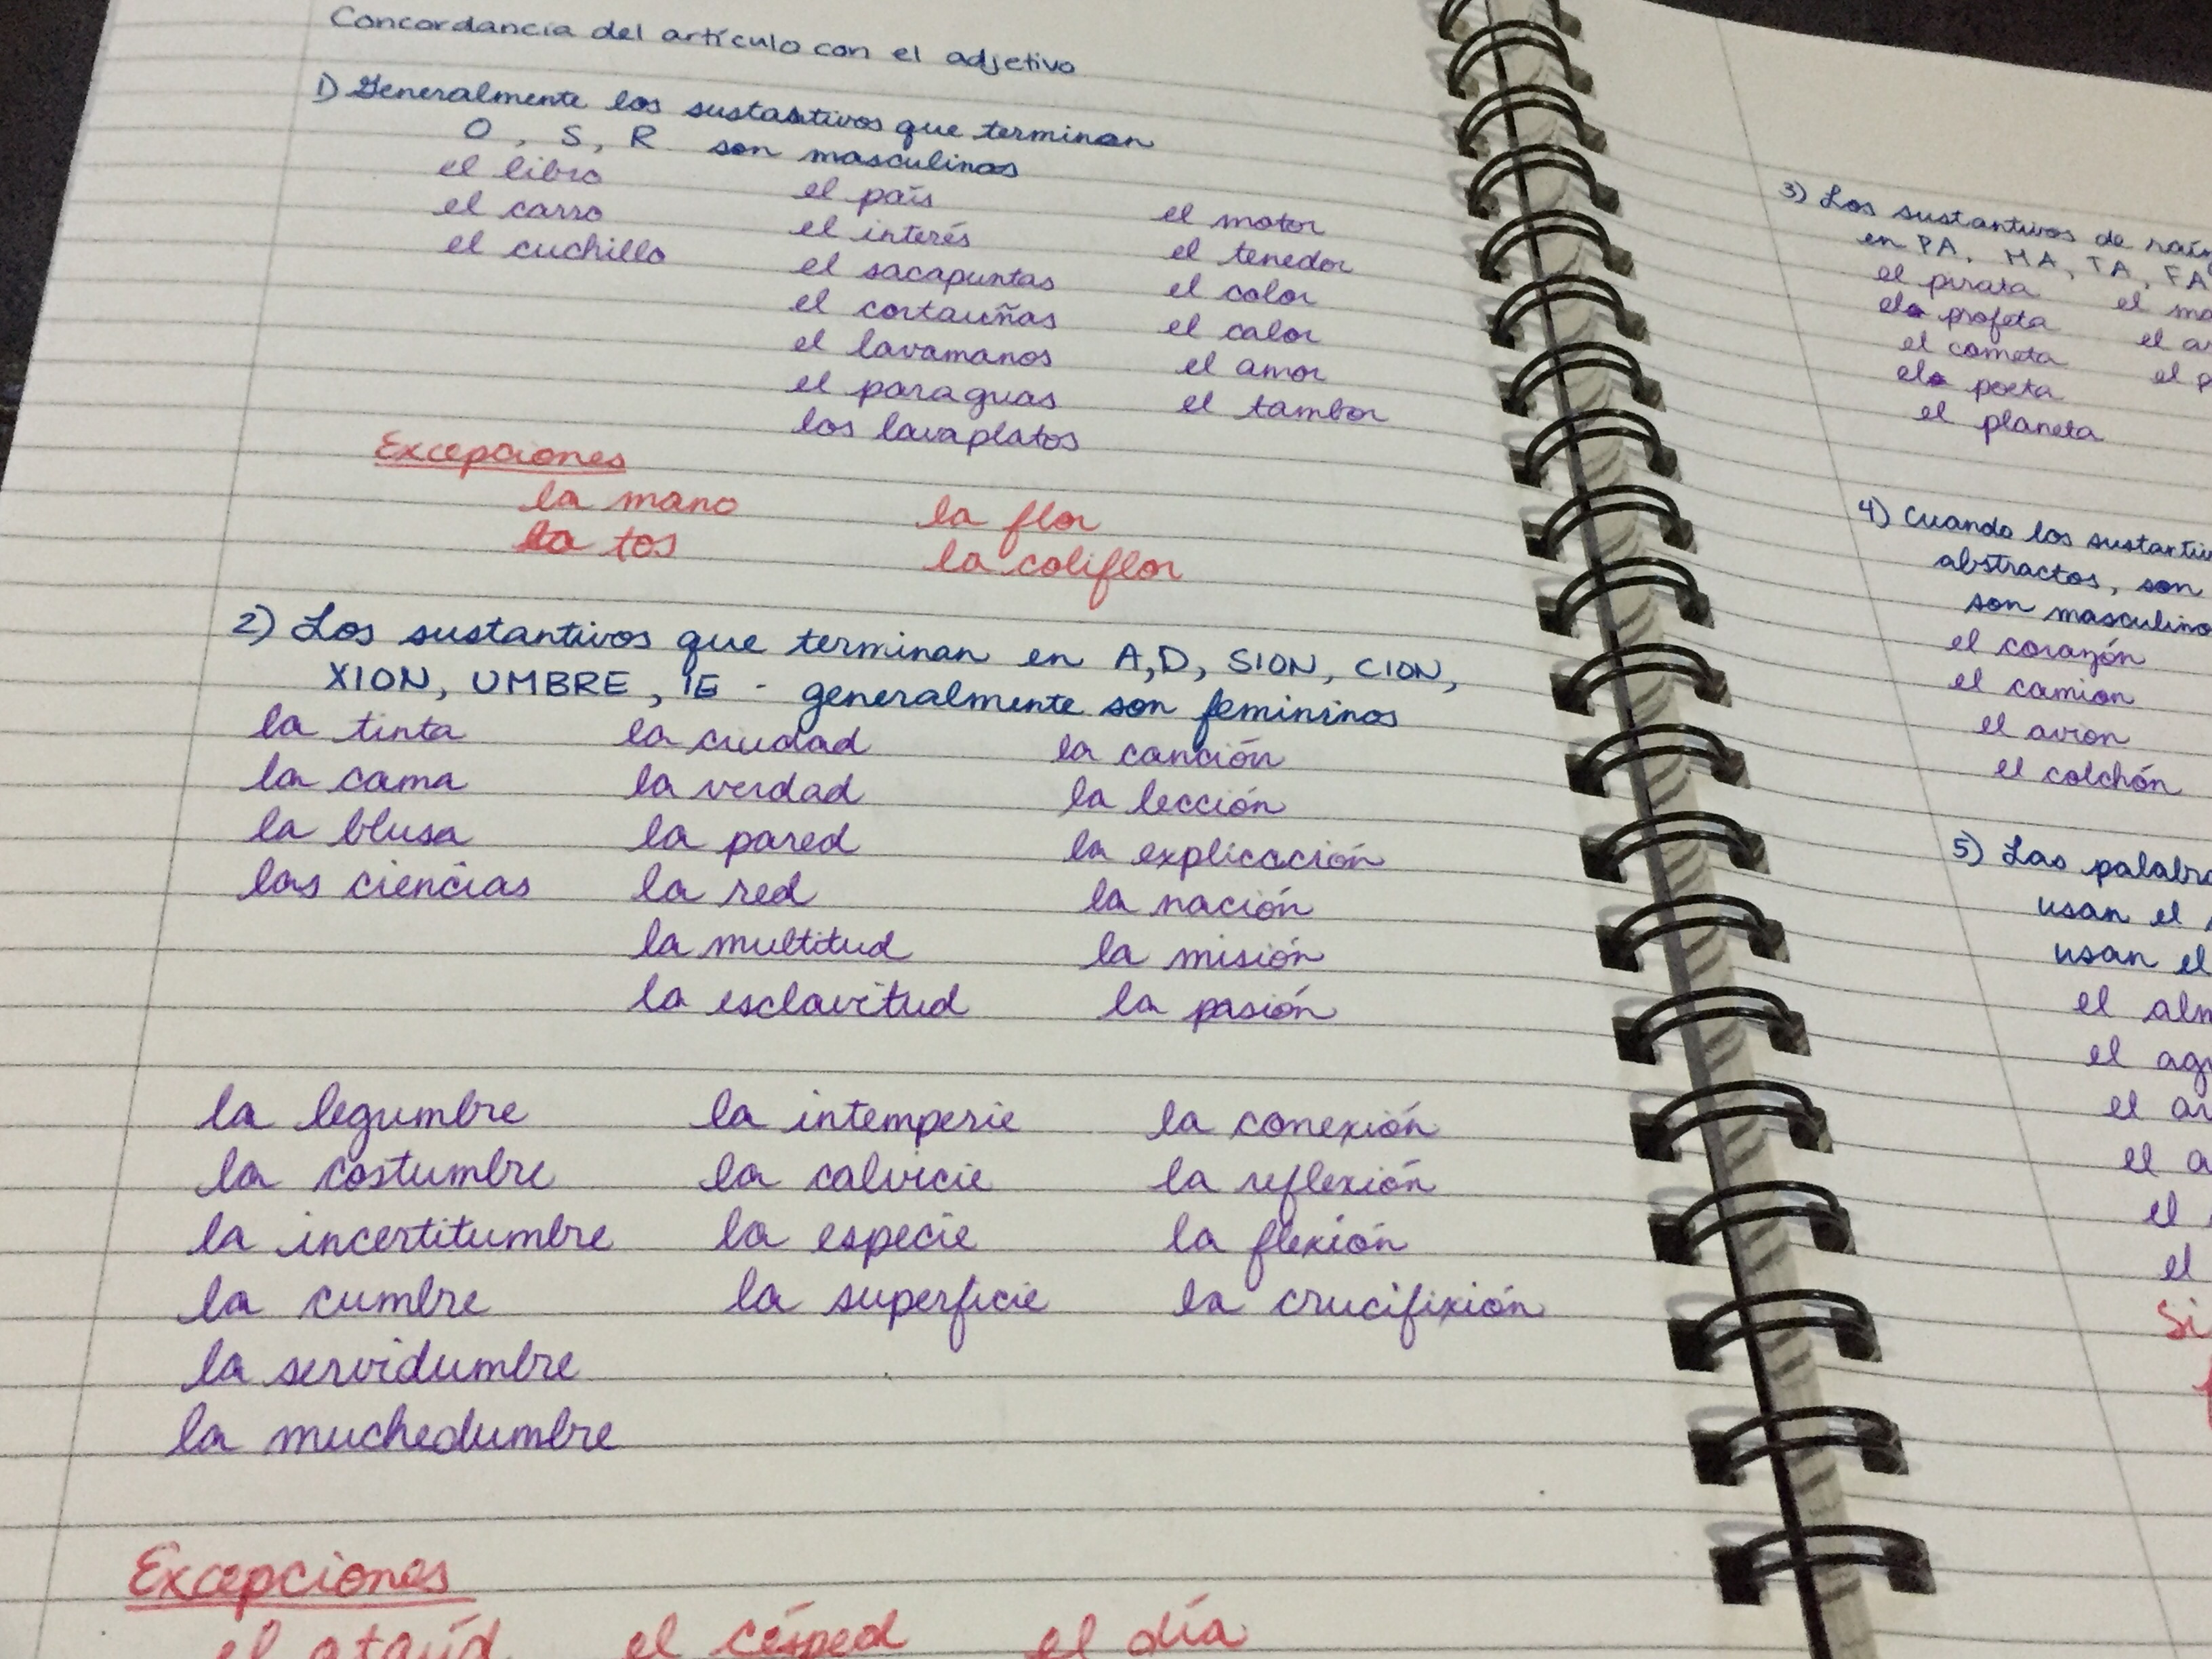 Concordancia del artículo con el adjetivo
1) Generalmente los sustantivos que terminan
O, S, R son masculinos
el libro
el carro
el cuchillo
el país
el interés
el sacapuntas
el cortauñas
el lavamanos
el paraguas
los lavaplatos
el motor
el tenedor
el color
el calor
el amor
el tambor
Excepciones
la mano la flor
la tos la coliflor
2) Los sustantivos que terminan en A, D, SION, CION,
XION, UMBRE, IE - generalmente son femininos
la tinta la ciudad la canción
la cama la verdad la lección
la blusa la pared la explicación
las ciencias la red la nación
la multitud la misión
la esclavitud la pasión
la legumbre la intemperie la conexión
la costumbre la calvicie la reflexión
la incertitumbre la especie la flexión
la cumbre la superficie la crucifixión
la servidumbre
la muchedumbre
Excepciones
el ataúd el césped el día
3) Los sustantivos de
en PA, MA, TA, FA
el pirata el
el profeta el
el cometa el
el poeta
el planeta
4) Cuando los
abstractos, son
son
el corazón
el camion
el avion
el colchón
5) Las
usan el
usan el
el
el
el
el
el
el